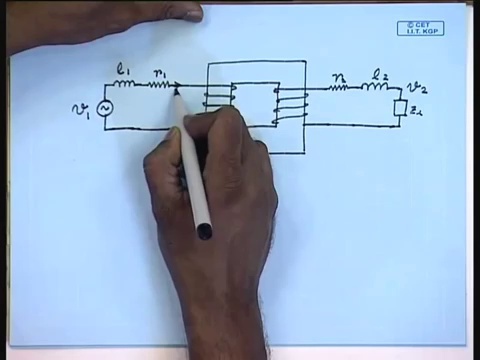 © CET
I.I.T. KGP
l₁ r₁ r₂ l₂ v₂
v₁ Z_L